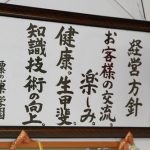 経営方針
お客様の交流、
楽しみ。
健康、生甲斐。
知識技術の向上。